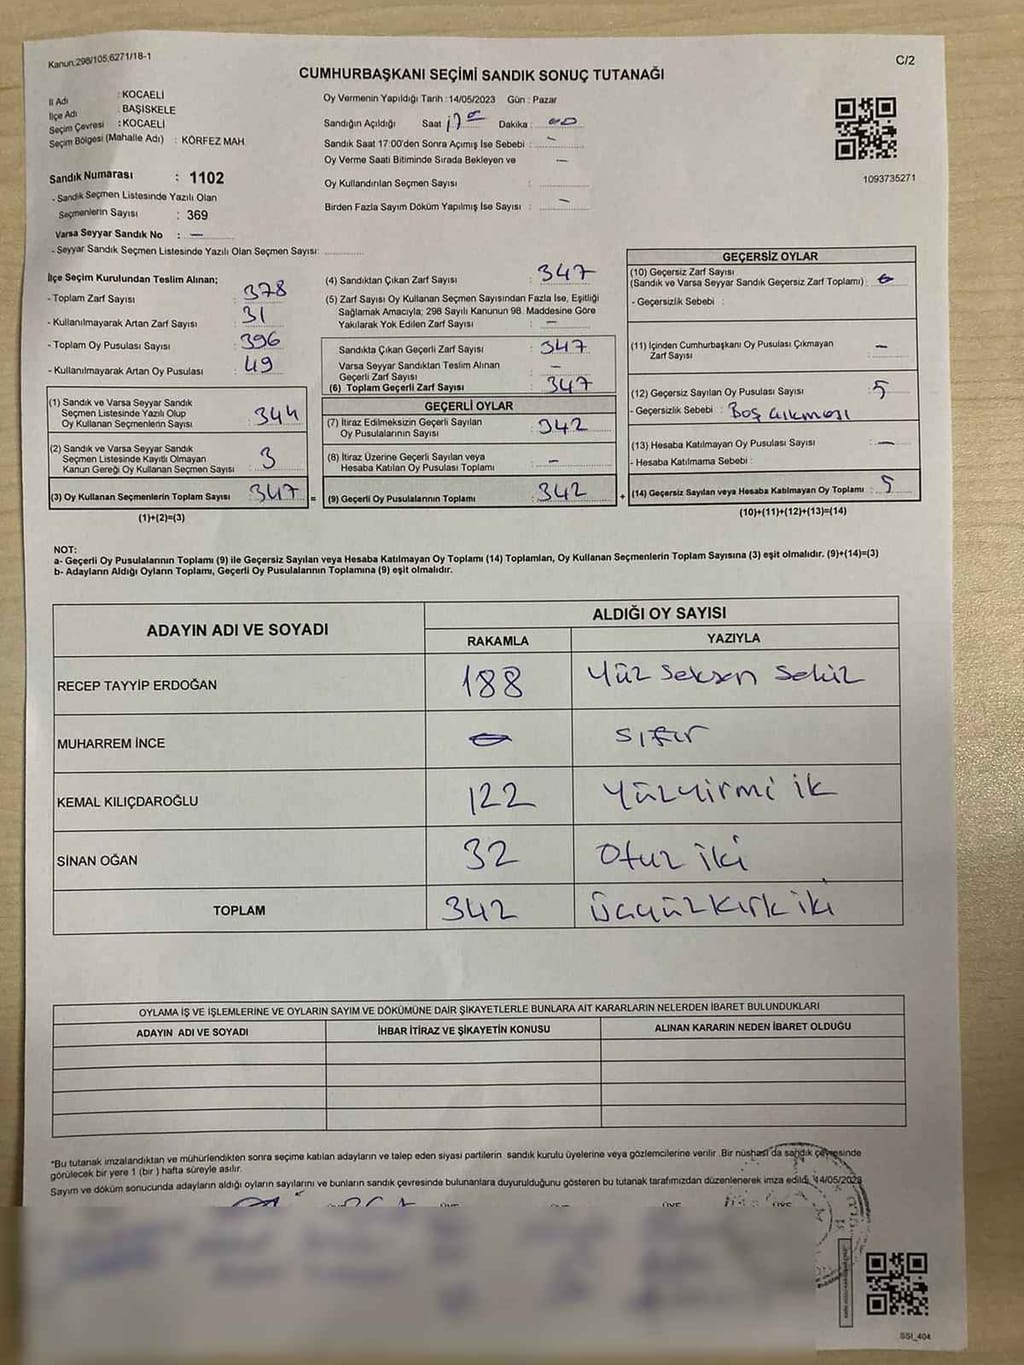 Kanun,298/105;6271/18-1
C/2
CUMHURBAŞKANI SEÇİMİ SANDIK SONUÇ TUTANAĞI
İl Adı : KOCAELİ
İlçe Adı : BAŞİSKELE
Seçim Çevresi : KOCAELİ
Seçim Bölgesi (Mahalle Adı) : KÖRFEZ MAH
Sandık Numarası : 1102
- Sandık Seçmen Listesinde Yazılı Olan
Seçmenlerin Sayısı : 369
Varsa Seyyar Sandık No : —
- Seyyar Sandık Seçmen Listesinde Yazılı Olan Seçmen Sayısı:
Oy Vermenin Yapıldığı Tarih : 14/05/2023 Gün : Pazar
Sandığın Açıldığı Saat 17 Dakika : 00
Sandık Saat 17:00'den Sonra Açımış İse Sebebi : —
Oy Verme Saati Bitiminde Sırada Bekleyen ve —
Oy Kullandırılan Seçmen Sayısı :
Birden Fazla Sayım Döküm Yapılmış İse Sayısı : —
1093735271
İlçe Seçim Kurulundan Teslim Alınan;
- Toplam Zarf Sayısı : 378
- Kullanılmayarak Artan Zarf Sayısı : 31
- Toplam Oy Pusulası Sayısı : 396
- Kullanılmayarak Artan Oy Pusulası : 49
(1) Sandık ve Varsa Seyyar Sandık
Seçmen Listesinde Yazılı Olup
Oy Kullanan Seçmenlerin Sayısı : 344
(2) Sandık ve Varsa Seyyar Sandık
Seçmen Listesinde Kayıtlı Olmayan
Kanun Gereği Oy Kullanan Seçmen Sayısı : 3
(3) Oy Kullanan Seçmenlerin Toplam Sayısı : 347
(1)+(2)=(3)
(4) Sandıktan Çıkan Zarf Sayısı : 347
(5) Zarf Sayısı Oy Kullanan Seçmen Sayısından Fazla İse, Eşitliği
Sağlamak Amacıyla; 298 Sayılı Kanunun 98. Maddesine Göre
Yakılarak Yok Edilen Zarf Sayısı : —
Sandıkta Çıkan Geçerli Zarf Sayısı : 347
Varsa Seyyar Sandıktan Teslim Alınan
Geçerli Zarf Sayısı : —
(6) Toplam Geçerli Zarf Sayısı : 347
GEÇERLİ OYLAR
(7) İtiraz Edilmeksizin Geçerli Sayılan
Oy Pusulalarının Sayısı : 342
(8) İtiraz Üzerine Geçerli Sayılan veya
Hesaba Katılan Oy Pusulası Toplamı : —
= (9) Geçerli Oy Pusulalarının Toplamı : 342
GEÇERSİZ OYLAR
(10) Geçersiz Zarf Sayısı
(Sandık ve Varsa Seyyar Sandık Geçersiz Zarf Toplamı) :
- Geçersizlik Sebebi :
(11) İçinden Cumhurbaşkanı Oy Pusulası Çıkmayan
Zarf Sayısı : —
(12) Geçersiz Sayılan Oy Pusulası Sayısı : 5
- Geçersizlik Sebebi : Boş çıkması
(13) Hesaba Katılmayan Oy Pusulası Sayısı : —
- Hesaba Katılmama Sebebi :
+ (14) Geçersiz Sayılan veya Hesaba Katılmayan Oy Toplamı : 5
(10)+(11)+(12)+(13)=(14)
NOT:
a- Geçerli Oy Pusulalarının Toplamı (9) ile Geçersiz Sayılan veya Hesaba Katılmayan Oy Toplamı (14) Toplamları, Oy Kullanan Seçmenlerin Toplam Sayısına (3) eşit olmalıdır. (9)+(14)=(3)
b- Adayların Aldığı Oyların Toplamı, Geçerli Oy Pusulalarının Toplamına (9) eşit olmalıdır.
ADAYIN ADI VE SOYADI
ALDIĞI OY SAYISI
RAKAMLA YAZIYLA
RECEP TAYYİP ERDOĞAN 188 Yüz seksen sekiz
MUHARREM İNCE sıfır
KEMAL KILIÇDAROĞLU 122 Yüzyirmi ik
SİNAN OĞAN 32 Otuz iki
TOPLAM 342 Üçyüzkırk iki
OYLAMA İŞ VE İŞLEMLERİNE VE OYLARIN SAYIM VE DÖKÜMÜNE DAİR ŞİKAYETLERLE BUNLARA AİT KARARLARIN NELERDEN İBARET BULUNDUKLARI
ADAYIN ADI VE SOYADI İHBAR İTİRAZ VE ŞİKAYETİN KONUSU ALINAN KARARIN NEDEN İBARET OLDUĞU
*Bu tutanak imzalandıktan ve mühürlendikten sonra seçime katılan adayların ve talep eden siyasi partilerin sandık kurulu üyelerine veya gözlemcilerine verilir. Bir nüshası da sandık çevresinde
görülecek bir yere 1 (bir ) hafta süreyle asılır.
Sayım ve döküm sonucunda adayların aldığı oyların sayılarını ve bunların sandık çevresinde bulunanlara duyurulduğunu gösteren bu tutanak tarafımızdan düzenlenerek imza edildi. 14/05/2023
ÜYE ÜYE
SSI_404